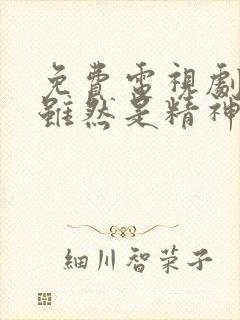 免費電視劇
雖然是精神
細川智栄子